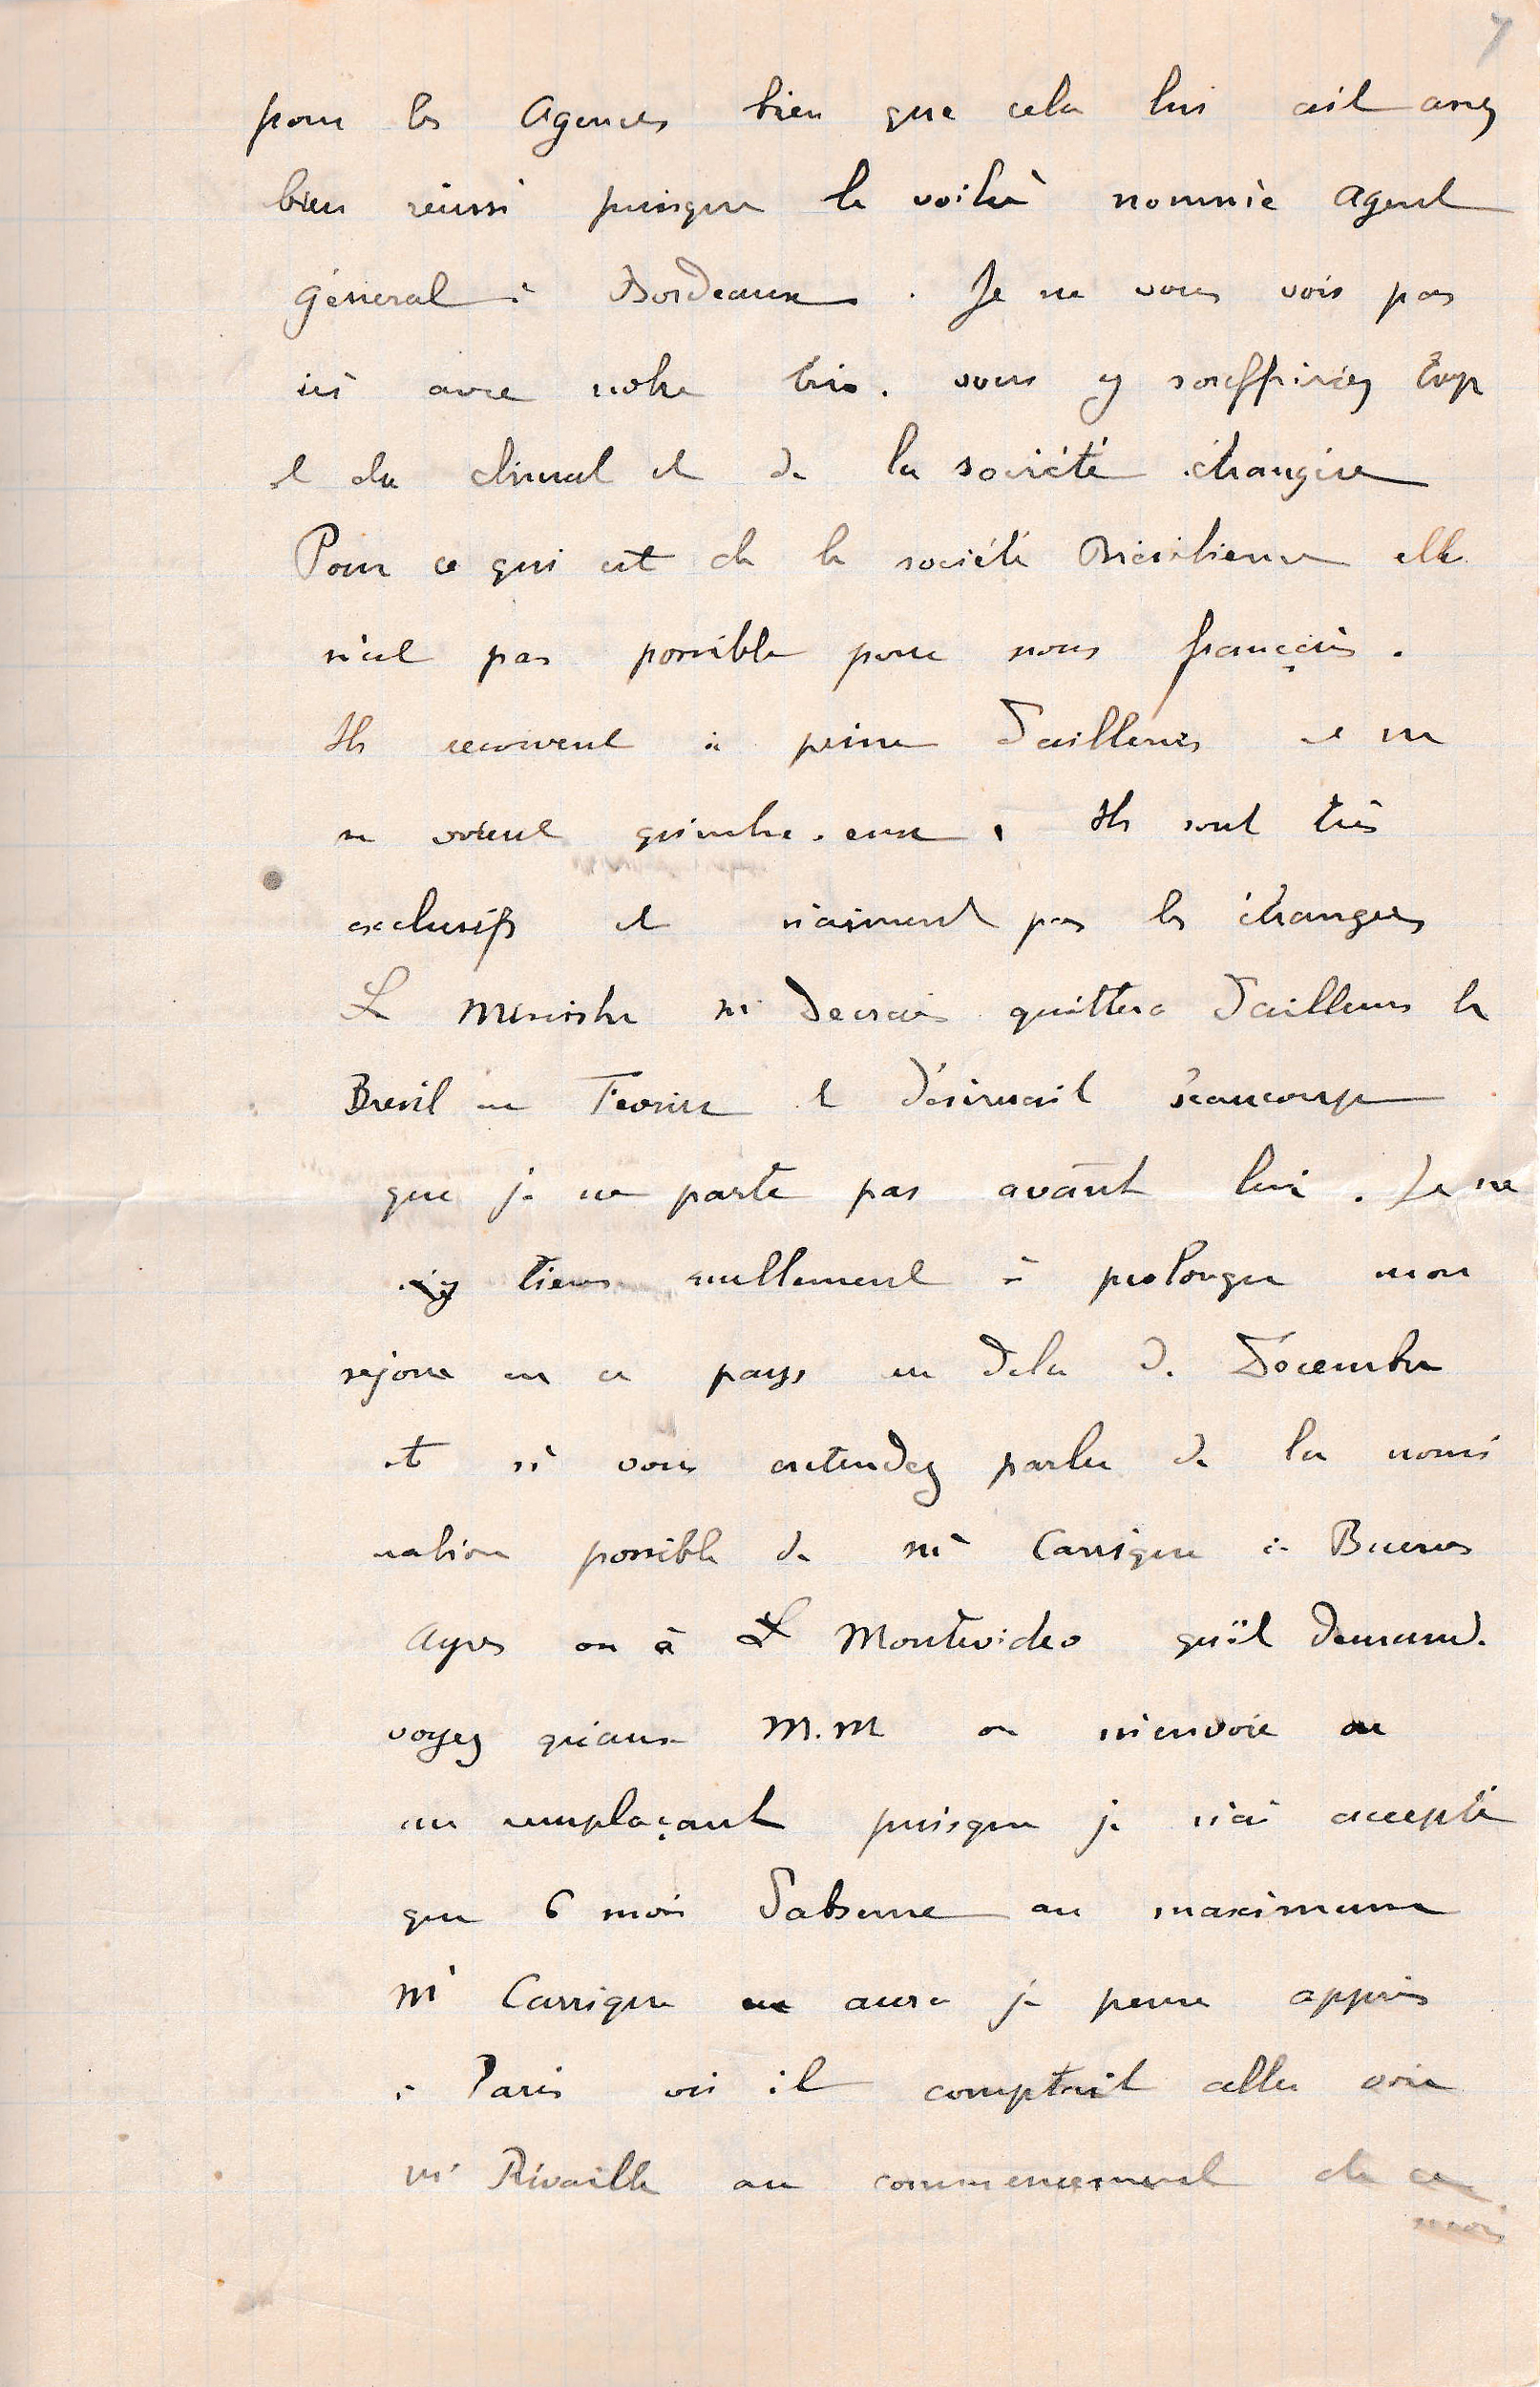 7
pour les Agences bien que cela lui ait assez
bien réussi puisque le voilà nommé Agent
Général à Bordeaux. Je ne vous vois pas
ici avec notre trio. vous y souffririez trop
et du climat et de la société étrangère
Pour ce qui est de la société Brésilienne elle
n'est pas possible pour nous français.
Ils reçoivent à peine d'ailleurs et ne
se voient qu'entre-eux. Ils sont très
exclusifs et n'aiment pas les étrangers
Le Ministre Mr Decrais quittera d'ailleurs le
Brésil en Février et désirerait beaucoup
que je ne parte pas avant lui. Je ne
tiens nullement à prolonger mon
séjour en ce pays en delà de Décembre
et si vous entendez parler de la nomi
nation possible de Mr Carrigue à Buenos
Ayres ou à Montevideo qu'il demande
voyez qu'aux M.M on m'envoie
un remplaçant puisque je n'ai accepté
que 6 mois d'absence au maximum
Mr Carrigue aura je pense appris
à Paris où il comptait aller voir
Mr Rivaille au commencement de ce
mois